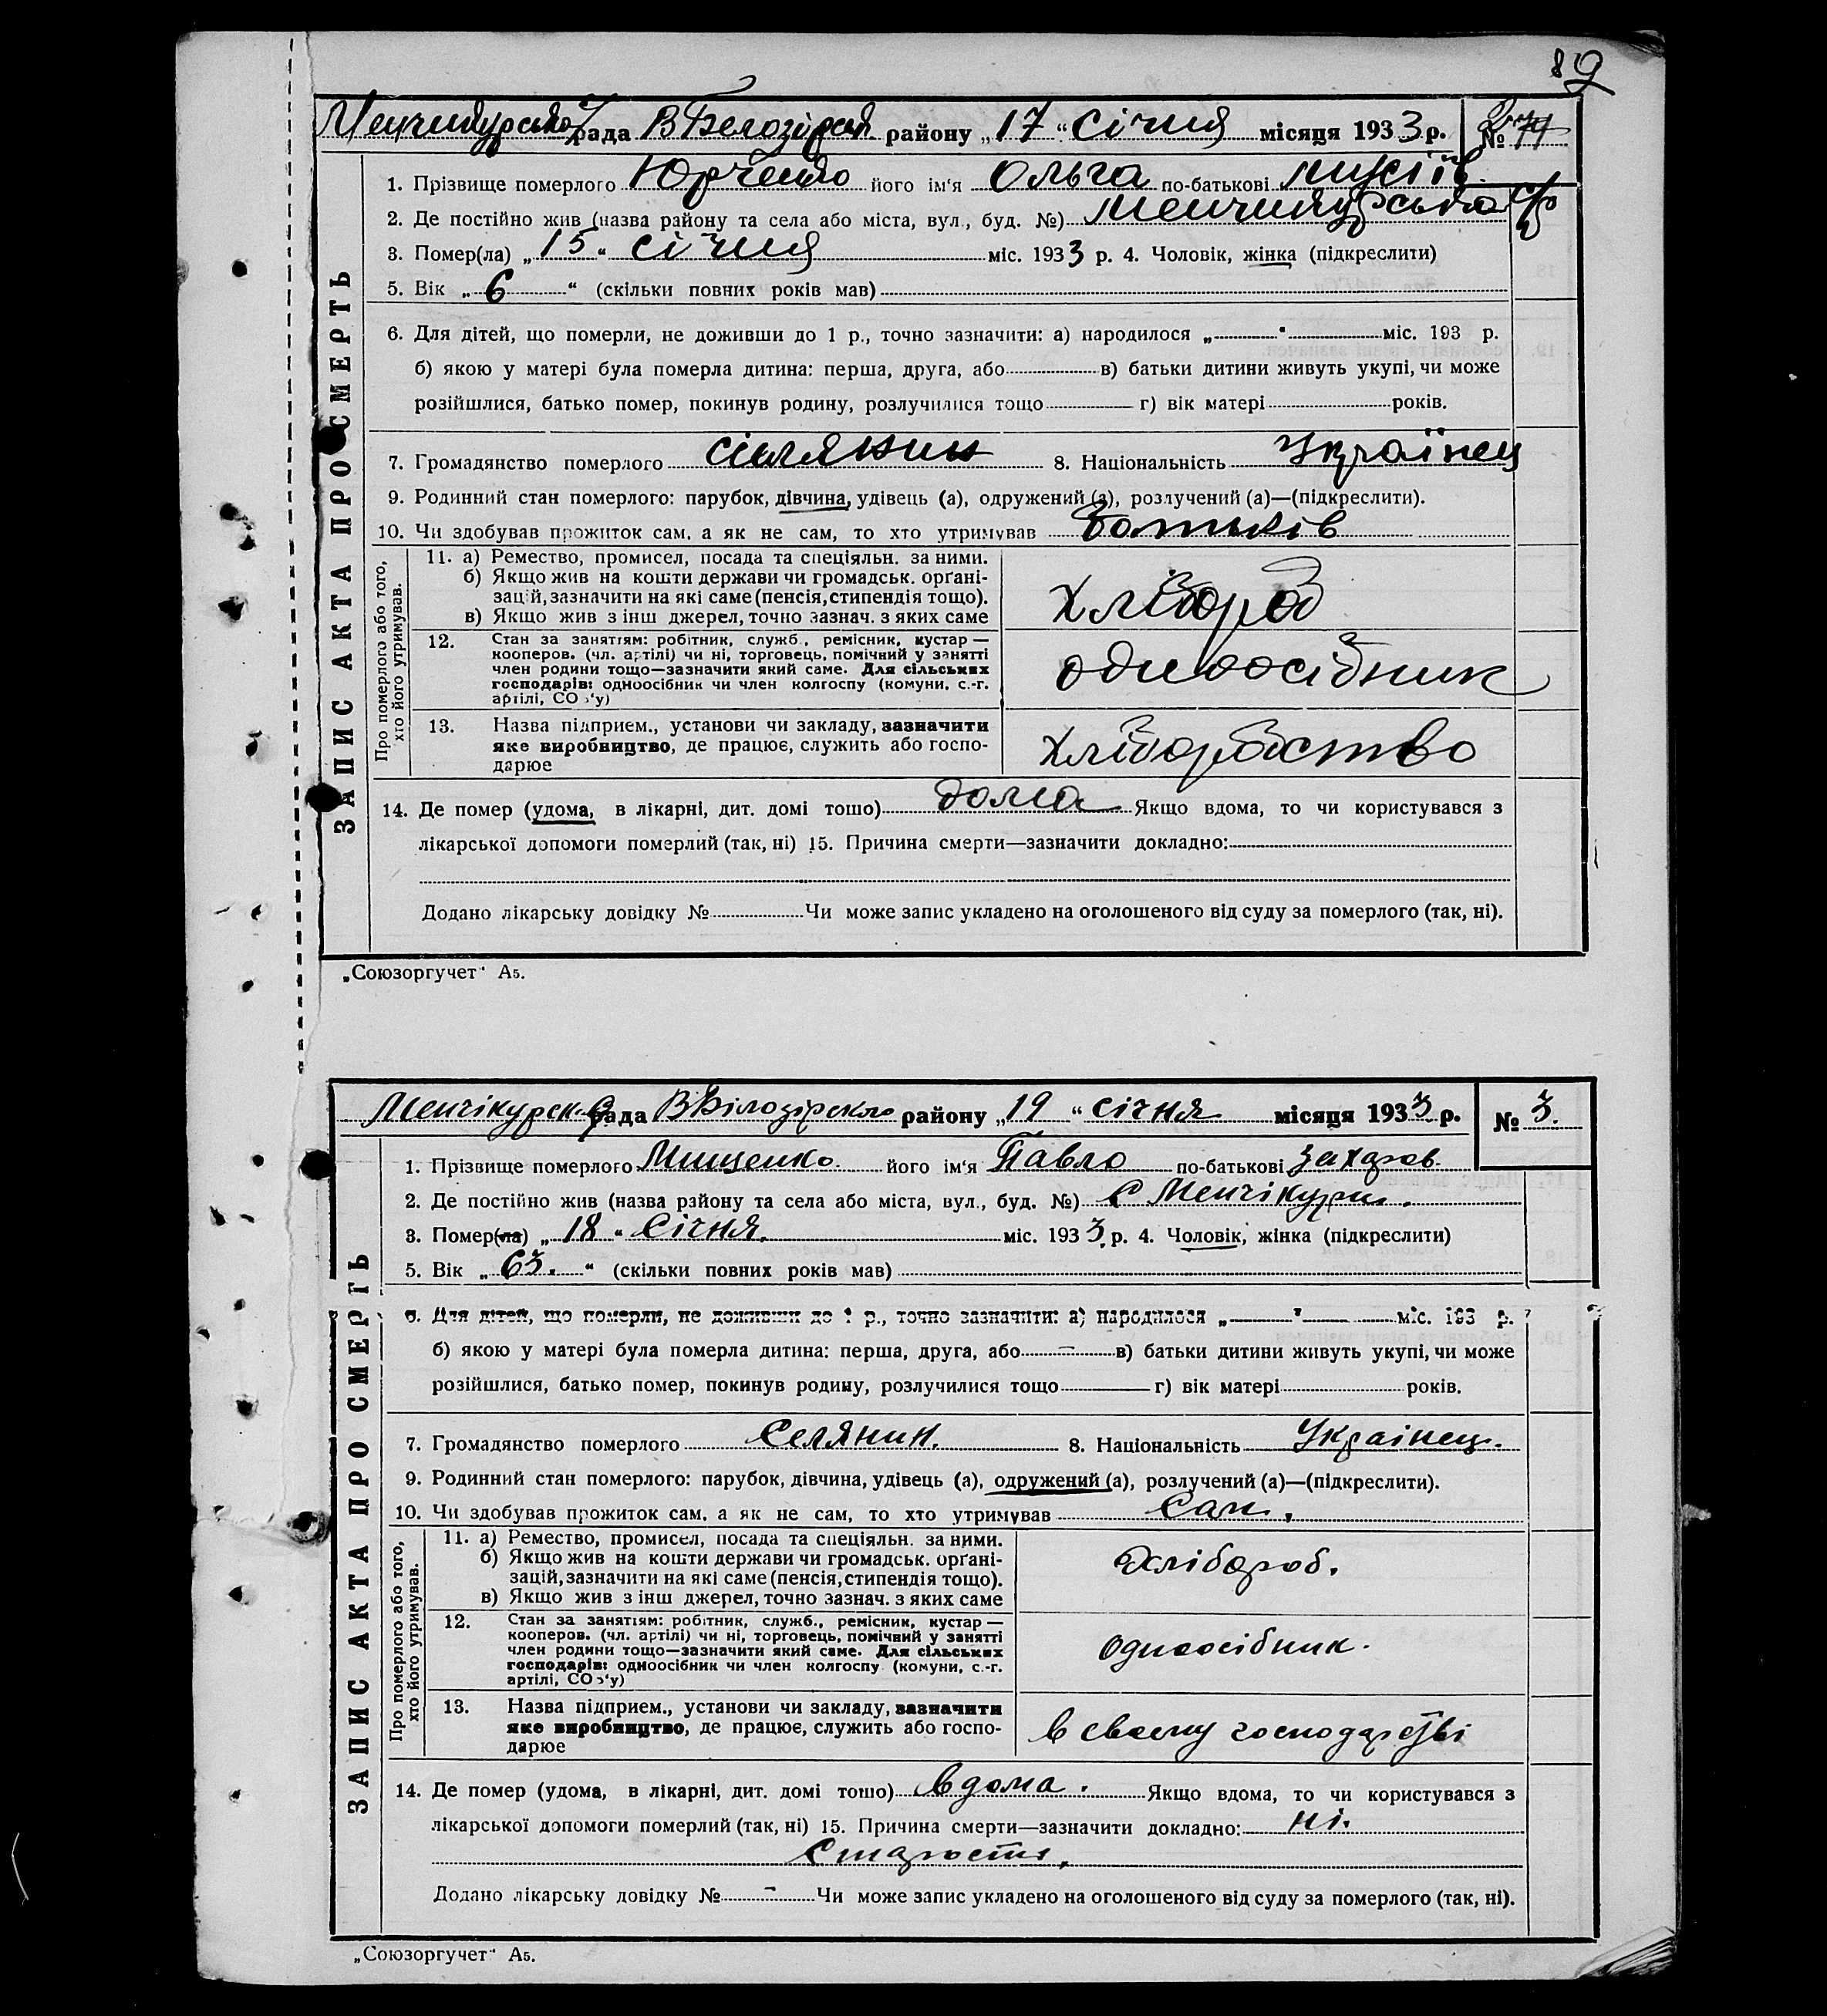 89
Менчикурська рада В Белозірськ району „17“ січня місяця 1933 р. №
1. Прізвище померлого Юрченко його ім‘я Ольга по-батькові Мусіїв
2. Де постійно жив (назва району та села або міста, вул., буд. №) Менчикурська с/р
3. Помер(ла) „15“ січня міс. 1933 р. 4. Чоловік, жінка (підкреслити)
5. Вік „6“ (скільки повних років мав)
6. Для дітей, що померли, не доживши до 1 р., точно зазначити: а) народилося „ “ міс. 193 р.
б) якою у матері була померла дитина: перша, друга, або в) батьки дитини живуть укупі, чи може
розійшлися, батько помер, покинув родину, розлучилися тощо г) вік матері років.
7. Громадянство померлого сілянин 8. Національність Українец
9. Родинний стан померлого: парубок, дівчина, удівець (а), одружений (а), розлучений (а)—(підкреслити).
10. Чи здобував прожиток сам, а як не сам, то хто утримував батьків
ЗАПИС АКТА ПРО СМЕРТЬ
Про померлого або того, хто його утримував.
11. а) Ремество, промисел, посада та спеціяльн. за ними.
б) Якщо жив на кошти держави чи громадськ. орґані-
зацій, зазначити на які саме (пенсія, стипендія тощо).
в) Якщо жив з інш джерел, точно зазнач. з яких саме
хлібороб
12. Стан за заняттям: робітник, служб., ремісник, кустар —
кооперов. (чл. артілі) чи ні, торговець, помічний у занятті
член родини тощо—зазначити який саме. Для сільських
господарів: одноосібник чи член колгоспу (комуни, с.-г.
артілі, СОЗ‘у)
одноосібник
13. Назва підприєм., установи чи закладу, зазначити
яке виробництво, де працює, служить або госпо-
дарює
хліборобство
14. Де помер (удома, в лікарні, дит. домі тошо) дома Якщо вдома, то чи користувався з
лікарської допомоги померлий (так, ні) 15. Причина смерти—зазначити докладно:
Додано лікарську довідку № Чи може запис укладено на оголошеного від суду за померлого (так, ні).
„Союзоргучет“ А5.
Менчікурск. рада В Білозірского району „19“ січня місяця 1933 р. № 3.
1. Прізвище померлого Мищенко його ім‘я Павло по-батькові Захаров.
2. Де постійно жив (назва району та села або міста, вул., буд. №) с Менчікури.
3. Помер(ла) „18“ Січня. міс. 1933 р. 4. Чоловік, жінка (підкреслити)
5. Вік „63.“ (скільки повних років мав)
6. Для дітей, що померли, не доживши до 1 р., точно зазначити: а) народилося „ “ міс. 193 р.
б) якою у матері була померла дитина: перша, друга, або — в) батьки дитини живуть укупі, чи може
розійшлися, батько помер, покинув родину, розлучилися тощо г) вік матері років.
7. Громадянство померлого Селянин. 8. Національність Українец.
9. Родинний стан померлого: парубок, дівчина, удівець (а), одружений (а), розлучений (а)—(підкреслити).
10. Чи здобував прожиток сам, а як не сам, то хто утримував Сам.
ЗАПИС АКТА ПРО СМЕРТЬ
Про померлого або того, хто його утримував.
11. а) Ремество, промисел, посада та спеціяльн. за ними.
б) Якщо жив на кошти держави чи громадськ. орґані-
зацій, зазначити на які саме (пенсія, стипендія тощо).
в) Якщо жив з інш джерел, точно зазнач. з яких саме
Хлібороб.
12. Стан за заняттям: робітник, служб., ремісник, кустар —
кооперов. (чл. артілі) чи ні, торговець, помічний у занятті
член родини тощо—зазначити який саме. Для сільських
господарів: одноосібник чи член колгоспу (комуни, с.-г.
артілі, СОЗ‘у)
одноосібник.
13. Назва підприєм., установи чи закладу, зазначити
яке виробництво, де працює, служить або госпо-
дарює
в своєму господарстві
14. Де помер (удома, в лікарні, дит. домі тошо) вдома. Якщо вдома, то чи користувався з
лікарської допомоги померлий (так, ні) 15. Причина смерти—зазначити докладно: ні.
Старости.
Додано лікарську довідку № — Чи може запис укладено на оголошеного від суду за померлого (так, ні).
„Союзоргучет“ А5.